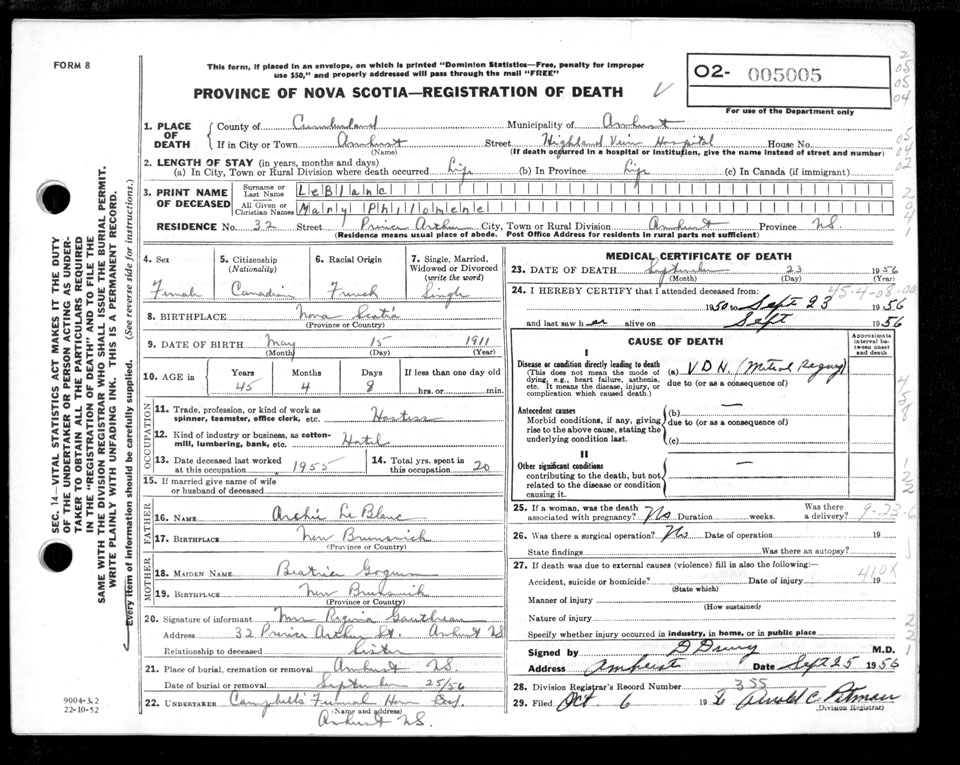 FORM 8
This form, if placed in an envelope, on which is printed "Dominion Statistics—Free, penalty for improper
use $50," and properly addressed will pass through the mail "FREE"
PROVINCE OF NOVA SCOTIA—REGISTRATION OF DEATH
O2- 005005
For use of the Department only
1. PLACE OF DEATH County of Cumberland Municipality of Amherst
If in City or Town Amherst Street Highland View Hospital House No.
(Name) (If death occurred in a hospital or institution, give the name instead of street and number)
2. LENGTH OF STAY (in years, months and days)
(a) In City, Town or Rural Division where death occurred Life (b) In Province Life (c) In Canada (if immigrant)
3. PRINT NAME OF DECEASED Surname or Last Name LeBlanc
All Given or Christian Names Mary Phillomene
RESIDENCE No. 32 Street Prince Arthur City, Town or Rural Division Amherst Province N.S.
(Residence means usual place of abode. Post Office Address for residents in rural parts not sufficient)
4. Sex 5. Citizenship (Nationality) 6. Racial Origin 7. Single, Married, Widowed or Divorced (write the word)
Female Canadian French Single
8. BIRTHPLACE Nova Scotia
(Province or Country)
9. DATE OF BIRTH May 15 1911
(Month) (Day) (Year)
10. AGE in Years Months Days If less than one day old
45 4 8 hrs. or min.
OCCUPATION
11. Trade, profession, or kind of work as spinner, teamster, office clerk, etc. Hostess
12. Kind of industry or business, as cotton-mill, lumbering, bank, etc. Hotel
13. Date deceased last worked at this occupation 1955 14. Total yrs. spent in this occupation 20
15. If married give name of wife or husband of deceased
FATHER
16. NAME Archie Le Blanc
17. BIRTHPLACE New Brunswick
(Province or Country)
MOTHER
18. MAIDEN NAME Beatrice
19. BIRTHPLACE New Brunswick
(Province or Country)
20. Signature of informant Mrs Regina Gauthreau
Address 32 Prince Arthur St. Amherst NS
Relationship to deceased Sister
21. Place of burial, cremation or removal Amherst NS.
Date of burial or removal September 25/56
22. UNDERTAKER Campbell's Funeral Home
(Name and address)
Amherst N.S.
MEDICAL CERTIFICATE OF DEATH
23. DATE OF DEATH September 23 1956
(Month) (Day) (Year)
24. I HEREBY CERTIFY that I attended deceased from:
45-4-08-00
1950 to Sept 23 1956
and last saw her alive on Sept 1956
CAUSE OF DEATH
Approximate interval between onset and death
I
Disease or condition directly leading to death (a) V D H. (Mitral Regurg)
(This does not mean the mode of dying, e.g., heart failure, asthenia, etc. It means the disease, injury, or complication which caused death.)
due to (or as a consequence of)
Antecedent causes (b) —
Morbid conditions, if any, giving rise to the above cause, stating the underlying condition last.
due to (or as a consequence of)
(c)
II
Other significant conditions —
contributing to the death, but not related to the disease or condition causing it.
25. If a woman, was the death associated with pregnancy? No Duration weeks. Was there a delivery? 9-23-6
26. Was there a surgical operation? No Date of operation 19
State findings Was there an autopsy?
27. If death was due to external causes (violence) fill in also the following:—
410X
Accident, suicide or homicide? Date of injury 19
(State which)
Manner of injury
(How sustained)
Nature of injury
Specify whether injury occurred in industry, in home, or in public place
Signed by D Drury M.D.
Address Amherst Date Sept 25 1956
28. Division Registrar's Record Number 355
29. Filed Oct 6 19 Arnold C.
(Division Registrar)
9004-3.2
22-10-52
SEC. 14—VITAL STATISTICS ACT MAKES IT THE DUTY
OF THE UNDERTAKER OR PERSON ACTING AS UNDER-
TAKER TO OBTAIN ALL THE PARTICULARS REQUIRED
IN THE "REGISTRATION OF DEATH" AND TO FILE THE
SAME WITH THE DIVISION REGISTRAR WHO SHALL ISSUE THE BURIAL PERMIT.
WRITE PLAINLY WITH UNFADING INK. THIS IS A PERMANENT RECORD.
Every item of information should be carefully supplied. (See reverse side for instructions.)